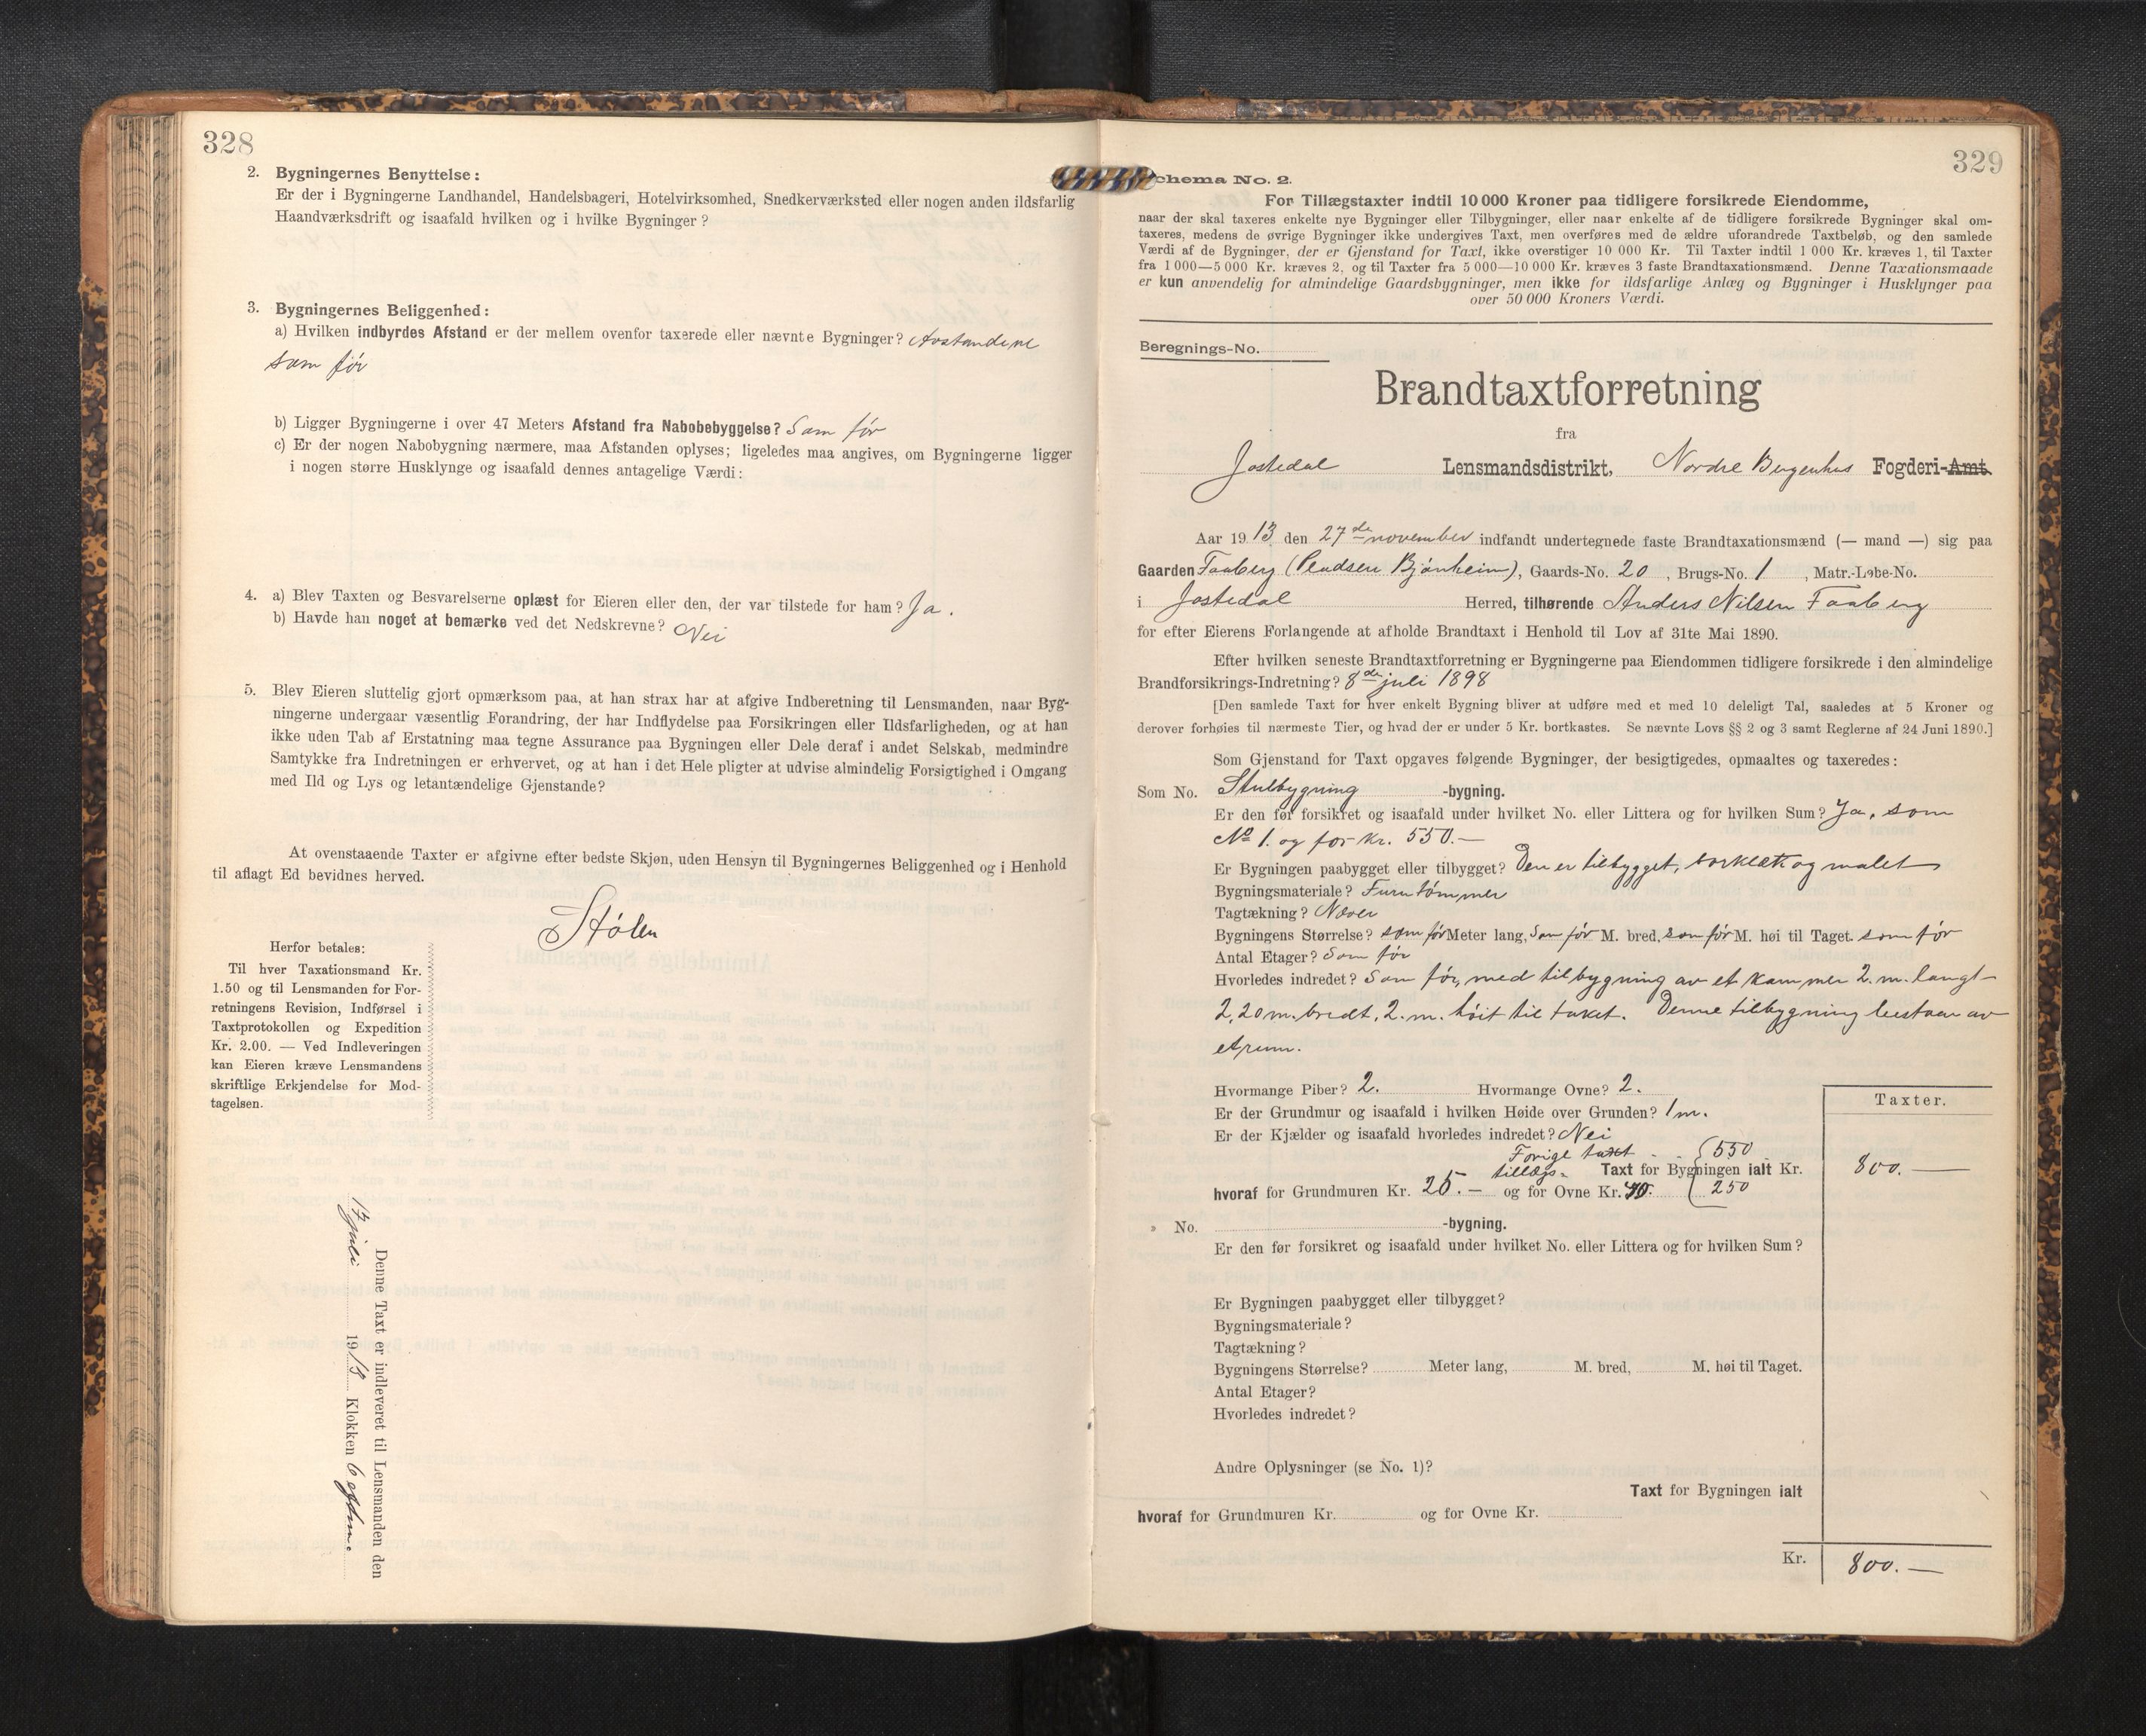 328
2. Bygningernes Benyttelse:
Er der i Bygningerne Landhandel, Handelsbageri, Hotelvirksomhed, Snedkerværksted eller nogen anden ildsfarlig
Haandværksdrift og isaafald hvilken og i hvilke Bygninger?
3. Bygningernes Beliggenhed:
a) Hvilken indbyrdes Afstand er der mellem ovenfor taxerede eller nævnte Bygninger? Avstandene
som før
b) Ligger Bygningerne i over 47 Meters Afstand fra Nabobebyggelse? Som før
c) Er der nogen Nabobygning nærmere, maa Afstanden oplyses; ligeledes maa angives, om Bygningerne ligger
i nogen større Husklynge og isaafald dennes antagelige Værdi:
4. a) Blev Taxten og Besvarelserne oplæst for Eieren eller den, der var tilstede for ham? Ja.
b) Havde han noget at bemærke ved det Nedskrevne? Nei
5. Blev Eieren sluttelig gjort opmærksom paa, at han strax har at afgive Indberetning til Lensmanden, naar Byg-
ningerne undergaar væsentlig Forandring, der har Indflydelse paa Forsikringen eller Ildsfarligheden, og at han
ikke uden Tab af Erstatning maa tegne Assurance paa Bygningen eller Dele deraf i andet Selskab, medmindre
Samtykke fra Indretningen er erhvervet, og at han i det Hele pligter at udvise almindelig Forsigtighed i Omgang
med Ild og Lys og letantændelige Gjenstande?
At ovenstaaende Taxter er afgivne efter bedste Skjøn, uden Hensyn til Bygningernes Beliggenhed og i Henhold
til aflagt Ed bevidnes herved.
Stölen
Herfor betales:
Til hver Taxationsmand Kr.
1.50 og til Lensmanden for For-
retningens Revision, Indførsel i
Taxtprotokollen og Expedition
Kr. 2.00. — Ved Indleveringen
kan Eieren kræve Lensmandens
skriftlige Erkjendelse for Mod-
tagelsen.
Denne Taxt er indleveret til Lensmanden den
juli 19 Klokken 6 eftm.
329
chema No. 2.
For Tillægstaxter indtil 10 000 Kroner paa tidligere forsikrede Eiendomme,
naar der skal taxeres enkelte nye Bygninger eller Tilbygninger, eller naar enkelte af de tidligere forsikrede Bygninger skal om-
taxeres, medens de øvrige Bygninger ikke undergives Taxt, men overføres med de ældre uforandrede Taxtbeløb, og den samlede
Værdi af de Bygninger, der er Gjenstand for Taxt, ikke overstiger 10 000 Kr. Til Taxter indtil 1 000 Kr. kræves 1, til Taxter
fra 1 000—5 000 Kr. kræves 2, og til Taxter fra 5 000—10 000 Kr. kræves 3 faste Brandtaxationsmænd. Denne Taxationsmaade
er kun anvendelig for almindelige Gaardsbygninger, men ikke for ildsfarlige Anlæg og Bygninger i Husklynger paa
over 50 000 Kroners Værdi.
Beregnings-No.
Brandtaxtforretning
fra
Jostedal Lensmandsdistrikt, Nordre Bergenhus Fogderi-Amt.
Aar 1913 den 27de november indfandt undertegnede faste Brandtaxationsmænd (— mand —) sig paa
Gaarden Faaberg (Pladsen Bjønheim), Gaards-No. 20, Brugs-No. 1, Matr.-Løbe-No.
i Jostedal Herred, tilhørende Anders Nilsen Faaberg
for efter Eierens Forlangende at afholde Brandtaxt i Henhold til Lov af 31te Mai 1890.
Efter hvilken seneste Brandtaxtforretning er Bygningerne paa Eiendommen tidligere forsikrede i den almindelige
Brandforsikrings-Indretning? 8de juli 1898
[Den samlede Taxt for hver enkelt Bygning bliver at udføre med et med 10 deleligt Tal, saaledes at 5 Kroner og
derover forhøies til nærmeste Tier, og hvad der er under 5 Kr. bortkastes. Se nævnte Lovs §§ 2 og 3 samt Reglerne af 24 Juni 1890.]
Som Gjenstand for Taxt opgaves følgende Bygninger, der besigtigedes, opmaaltes og taxeredes:
Som No. Stulbygning -bygning.
Er den før forsikret og isaafald under hvilket No. eller Littera og for hvilken Sum? Ja, som
No 1. og for kr. 550.—
Er Bygningen paabygget eller tilbygget? Den er tilbygget, bordklædt og malet
Bygningsmateriale? Furutømmer
Tagtækning? Næver
Bygningens Størrelse? som før Meter lang, som før M. bred, som før M. høi til Taget. som før
Antal Etager? Som før
Hvorledes indredet? Som før, med tilbygning av et kammer 2. m. langt
2,20 m. bredt, 2. m. høit til taket. Denne tilbygning bestaar av
et rum.
Hvormange Piber? 2. Hvormange Ovne? 2.
Er der Grundmur og isaafald i hvilken Høide over Grunden? 1 m.
Er der Kjælder og isaafald hvorledes indredet? Nei
Forige taxt - - 550
tillægs- Taxt for Bygningen ialt Kr.
hvoraf for Grundmuren Kr. 25.— og for Ovne Kr. 40. 250
Taxter.
800.—
" No. -bygning.
Er den før forsikret og isaafald under hvilket No. eller Littera og for hvilken Sum?
Er Bygningen paabygget eller tilbygget?
Bygningsmateriale?
Tagtækning?
Bygningens Størrelse? Meter lang, M. bred, M. høi til Taget.
Antal Etager?
Hvorledes indredet?
Andre Oplysninger (se No. 1)?
Taxt for Bygningen ialt
hvoraf for Grundmuren Kr. og for Ovne Kr.
Kr. 800.—